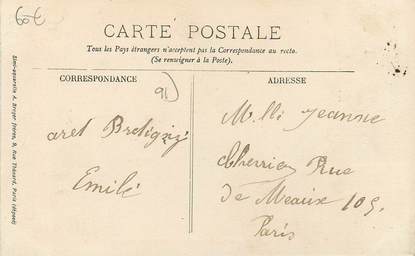 60€
CARTE POSTALE
Tous les Pays étrangers n'acceptent pas la Correspondance au recto.
(Se renseigner à la Poste).
CORRESPONDANCE
ADRESSE
91
aret Bretigny
Emile
M.lle Jeanne
Cherrier Rue
de Meaux 109.
Paris
Simi-aquarelle A. Breger Frères, 9, Rue Thénard, Paris (déposé)